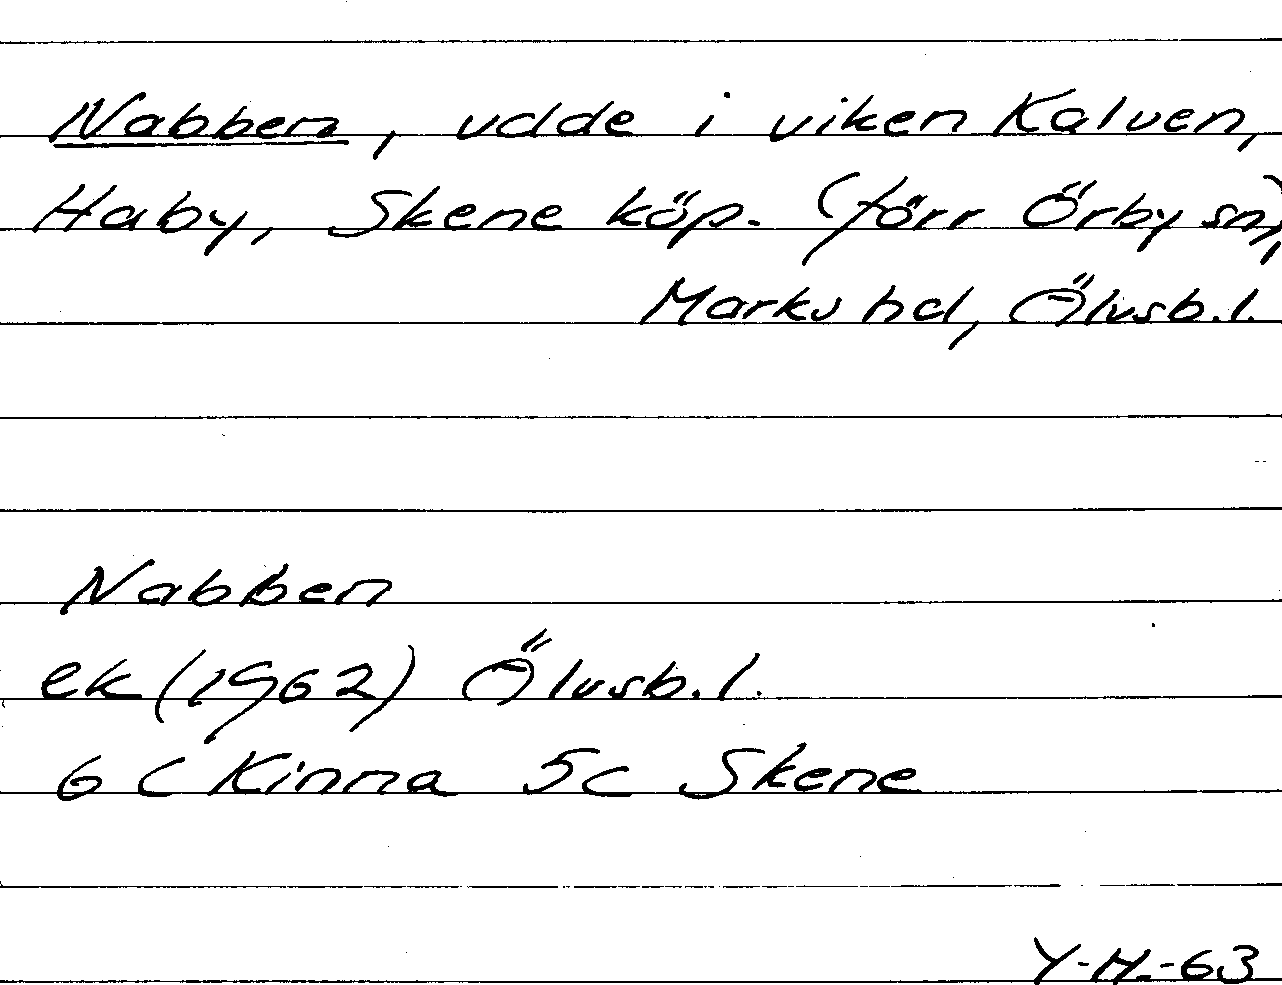 Nabben, udde i viken Kalven,
Haby, Skene köp. (förr Örby sn),
Marks hd, Älvsb.l.
Nabben
ek (1962) Älvsb.l.
6 C Kinna 5c Skene
Y-H.-63